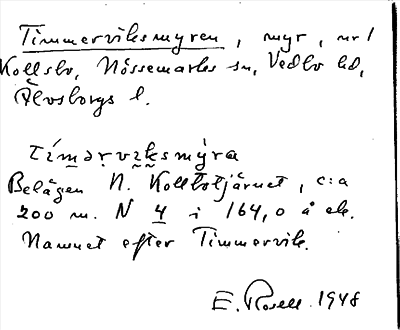 Timmerviksmyren, myr, nr 1
Kollsbo, Nössemarks sn, Vedbo hd,
Älvsborgs l.
tímərviksmy̍ra
Belägen N. Kollbotjärnet, c:a
200 m. N 4 i 164,0 å ek.
Namnet efter Timmervik.
E. Rosell 1948